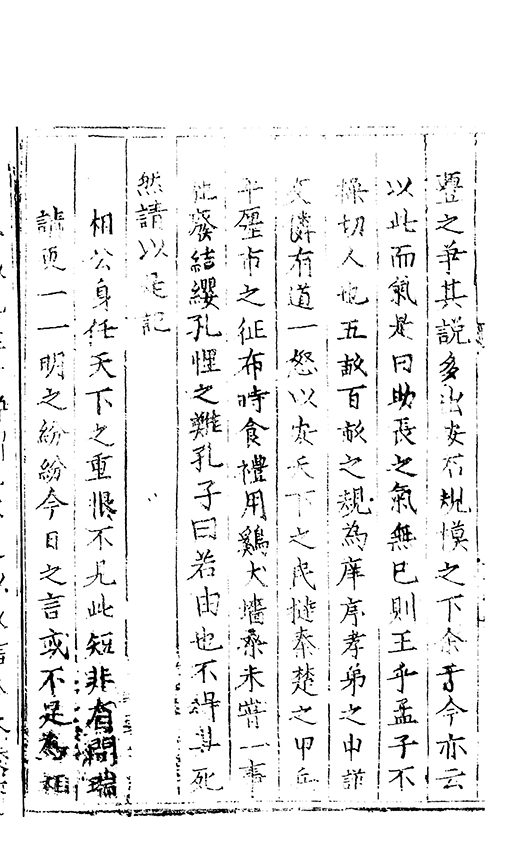 豐之爭其説多出安石規模之下余于今亦云
以此而氣是曰助長之氣無已則王乎孟子不
操切人也五畝百畝之規為庠序孝弟之申謹
交隣有道一怒以安天下之民撻秦楚之甲兵
平廛市之征布時食禮用鷄犬墻桑未嘗一事
他廢結纓孔悝之難孔子曰若由也不得其死
然請以是記
相公身任天下之重恨不見此短非有間瑞
請更一一明之紛紛今日之言或不足為相